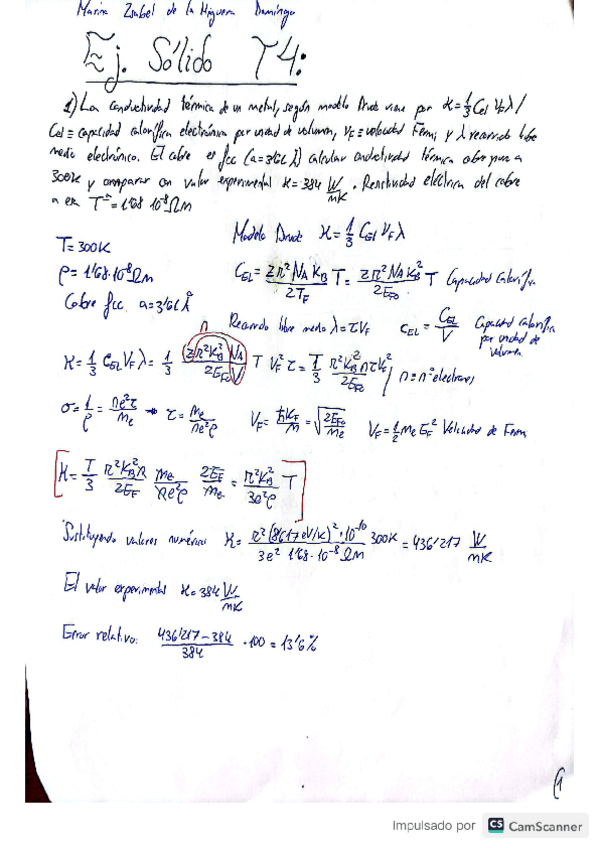 Maria Isabel de la Higuera Domingo
Ej. Sólido T4:
1) La conductividad térmica de un metal, según modelo Drude viene por K=1/3 C_el V_F λ /
C_el = capacidad calorífica electrónica por unidad de volumen, V_F = velocidad Fermi, y λ recorrido libre
medio electrónico. El cobre es fcc (a=3'61 Å) calcular conductividad térmica cobre para a
300K y comparar con valor experimental K=384 W/mK. Resistividad eléctrica del cobre
a esa Tª = 1'68 10⁻⁸ Ωm
T=300K
ρ=1'68·10⁻⁸ Ωm
Cobre fcc a=3'61 Å
Modelo Drude K=1/3 C_el V_F λ
C_EL = zπ² N_A K_B/2T_F T = zπ² N_A K_B²/2E_F0 T Capacidad Calorífica
Recorrido libre medio λ=τV_F c_EL = C_EL/V Capacidad calorífica
por unidad de
volumen
n
K = 1/3 C_EL V_F λ = 1/3 zπ²K_B² N_A/2E_F0 V T V_F² τ = T/3 π²K_B² nτV_F²/2E_F0 / n = nº electrones
σ = 1/ρ = ne²τ/m_e → τ = m_e/ne²ρ V_F = ħK_F/m = √2E_F0/m_e V_F = 1/2 m_e E_F² Velocidad de Fermi
K = T/3 π²K_B²n/2E_F m_e/ne²ρ 2E_F/m_e = π²K_B²/3e²ρ T
Sustituyendo valores numéricos K = π²(8617eV/K)²·10⁻¹⁰/3e² 1'68·10⁻⁸ Ωm 300K = 436'217 W/mK
El valor experimental K=384 W/mK
Error relativo: 436'217−384/384 ·100 = 13'6%
Impulsado por CS CamScanner